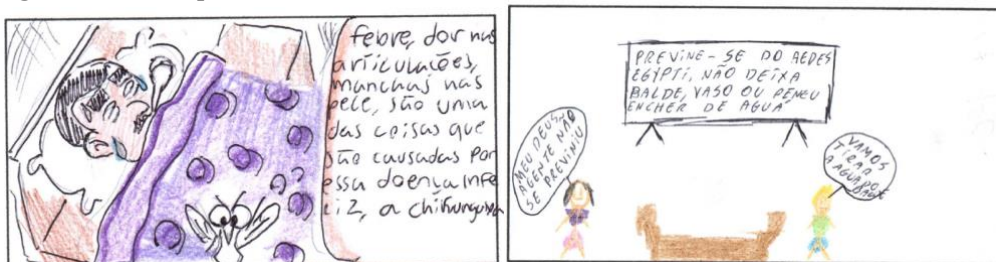 febre, dor nas
articulações,
manchas nas
pele, são uma
das coisas que
são causadas por
essa doença infe
liz, a chikungunya
PREVINE-SE DO AEDES
EGYPTI, NÃO DEIXA
BALDE, VASO OU PENEU
ENCHER DE AGUA
MEU DEUS,
AGENTE NÃO
SE PREVINIU
VAMOS
TIRAR
A AGUA DO